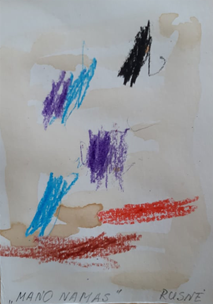 „MANO NAMAS" RUSNĖ